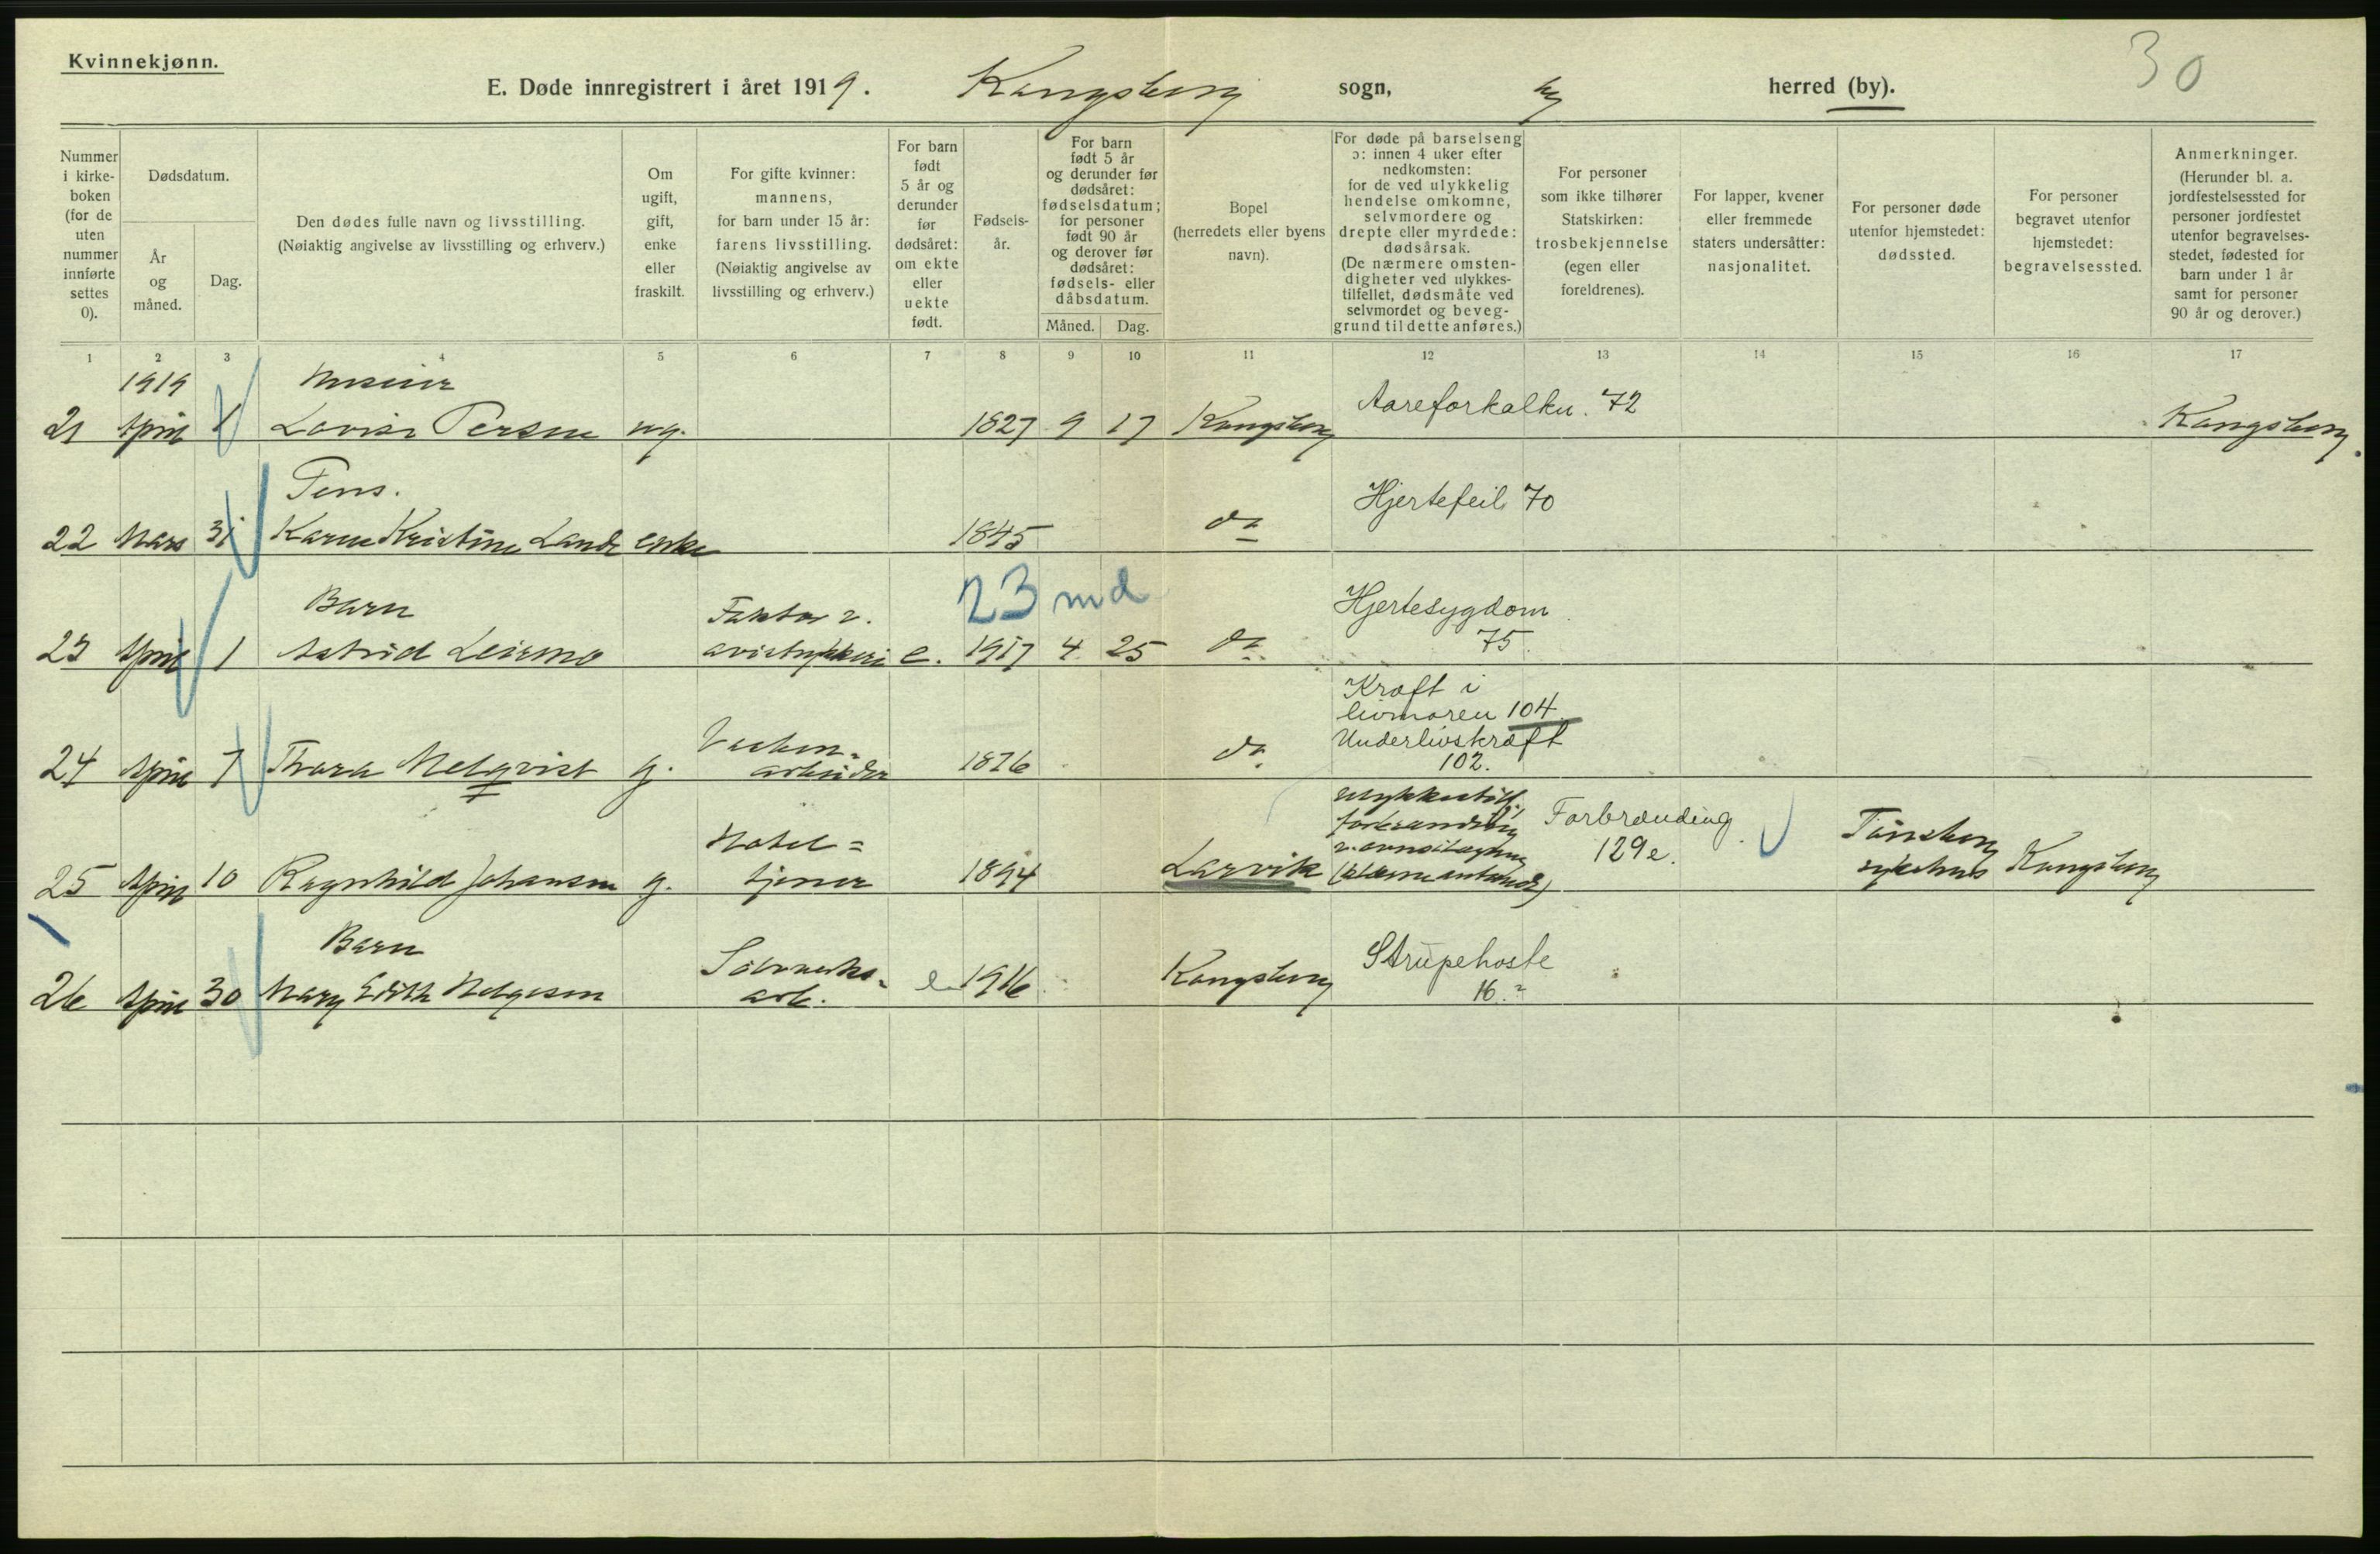 Kvinnekjønn.
30
E. Døde innregistrert i året 1919. Kongsberg sogn, by herred (by).
Nummer
i kirke-
boken
(for de
uten
nummer
innførte
settes
0).
Dødsdatum.
År
og
måned.
Dag.
Den dødes fulle navn og livsstilling.
(Nøiaktig angivelse av livsstilling og erhverv.)
Om
ugift,
gift,
enke
eller
fraskilt.
For gifte kvinner:
mannens,
for barn under 15 år:
farens livsstilling.
(Nøiaktig angivelse av
livsstilling og erhverv.)
For barn
født
5 år og
derunder
før
dødsåret:
om ekte
eller
uekte
født.
Fødsels-
år.
For barn
født 5 år
og derunder før
dødsåret:
fødselsdatum;
for personer
født 90 år
og derover før
dødsåret:
fødsels- eller
dåbsdatum.
Måned. Dag.
Bopel
(herredets eller byens
navn).
For døde på barselseng
ɔ: innen 4 uker efter
nedkomsten:
for de ved ulykkelig
hendelse omkomne,
selvmordere og
drepte eller myrdede:
dødsårsak.
(De nærmere omsten-
digheter ved ulykkes-
tilfellet, dødsmåte ved
selvmordet og beveg-
grund til dette anføres.)
For personer
som ikke tilhører
Statskirken:
trosbekjennelse
(egen eller
foreldrenes).
For lapper, kvener
eller fremmede
staters undersåtter:
nasjonalitet.
For personer døde
utenfor hjemstedet:
dødssted.
For personer
begravet utenfor
hjemstedet:
begravelsessted.
Anmerkninger.
(Herunder bl. a.
jordfestelsessted for
personer jordfestet
utenfor begravelses-
stedet, fødested for
barn under 1 år
samt for personer
90 år og derover.)
1 2 3 4 5 6 7 8 9 10 11 12 13 14 15 16 17
1919
21 April 1 Lovise Persen ug. 1827 9 17 Kongsberg Aareforkalkn. 72 Kongsberg.
Pens.
22 Mars 31 Karen Kristine Lande enke 1845 do Hjertefeil 70
23 md
Barn
Faktor v.
Hjertesygdom
23 April 1 Astrid Leirmo avistrykkeri e. 1917 4 25 do 75.
Kræft i
livmoren 104
Underlivskræft
102.
24 April 7 Thora Melqvist g. arbeider 1876 do
Hotel=
tjener
forbrænding
Forbrænding
129e.
25 April 10 Ragnhild Johansen g. 1894 Larvik Tønsberg
sykehus Kongsberg
Barn
Sølvverks-
arb.
Strupehoste
16.
26 April 30 Mary Edith Helgesen e 1916 Kongsberg